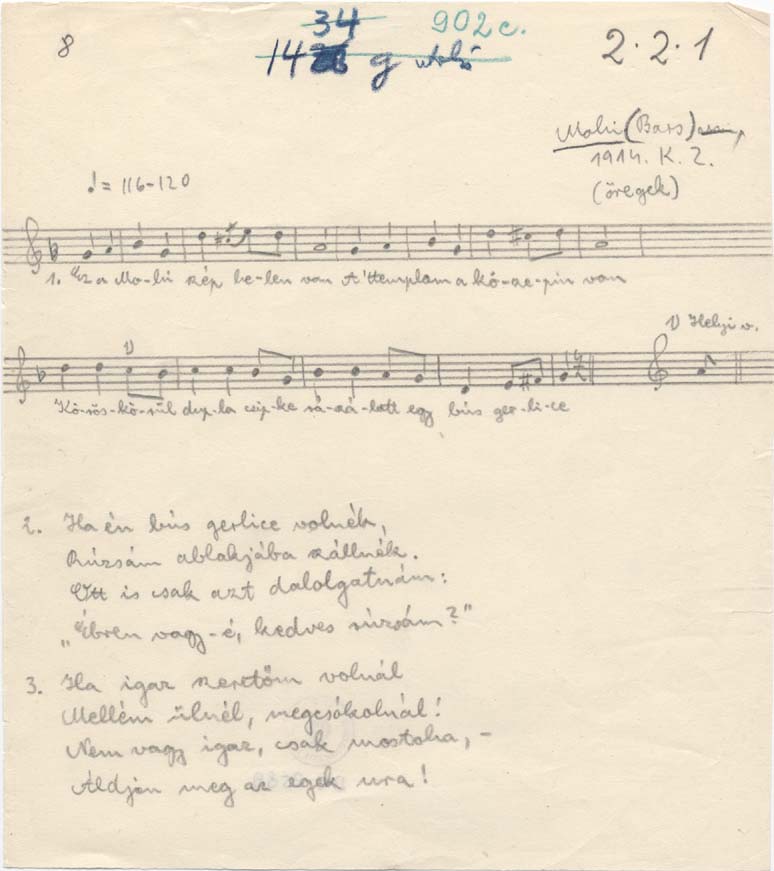 34 902c.
8 14 g utolsó 2.2.1
Mohi (Bars)
1914. K. Z.
(öregek)
♩ = 116-120
1. Ez a Mo-hi szép he-len van A'ttemplom a kö-ze-pin van
1) Helyi v.
1)
Kö-rös-kö-rül dup-la csip-ke rá-szá-lott egy bús ger-li-ce
2. Ha én bús gerlice volnék,
Rúzsám ablakjába szállnék.
Ott is csak azt dalolgatnám:
„Ébren vagy-é, kedves rúzsám?"
3. Ha igaz szeretőm volnál
Mellém ülnél, megcsókolnál!
Nem vagy igaz, csak mostoha, -
Áldjon meg az egek ura!